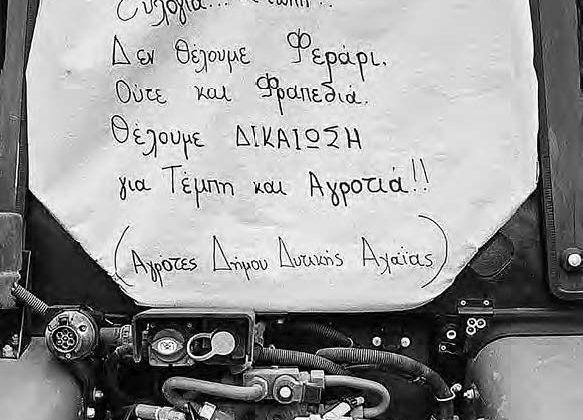 Ξυλόγια...
Δεν θέλουμε Φεράρι.
Ούτε και Φραπεδιά.
Θέλουμε ΔΙΚΑΙΩΣΗ
για Τέμπη και Αγροτιά!!
(Αγρότες Δήμου Δυτικής Αχαΐας)